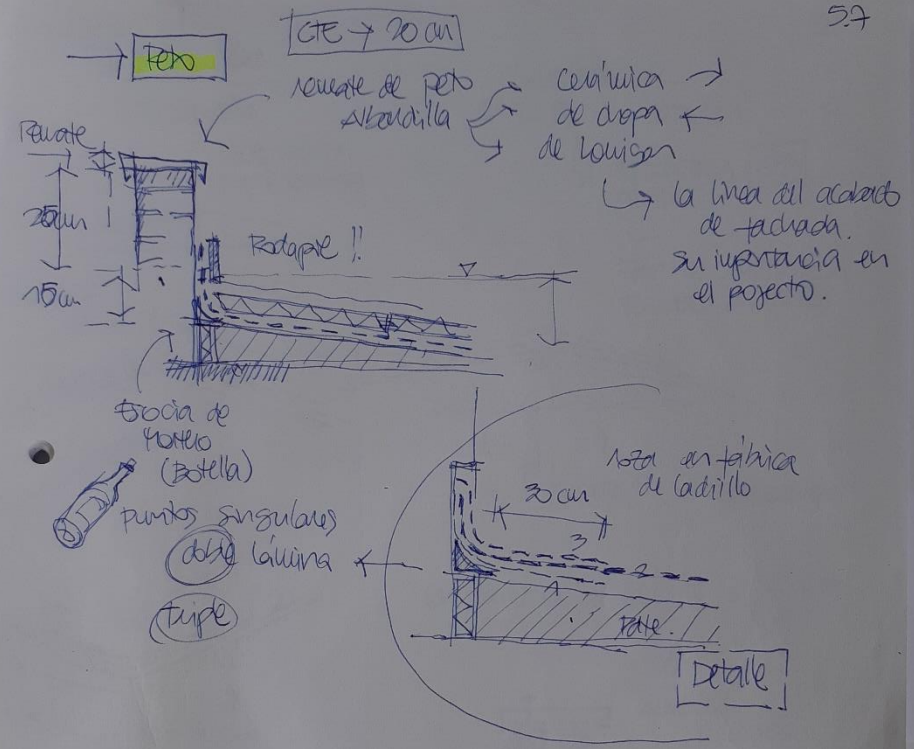 5.7
CTE → 20 cm
→ Peto
remate de peto
Albardilla
Cerámica →
de chapa ←
de Hormigon
↳ la línea del acabado
de fachada.
Su importancia en
el poyecto.
Remate
15 cm
Rodapie !!
Escocia de
Mortero
(Botella)
puntos singulares
doble lámina ←
triple
roza en fábrica
de ladrillo
30 cm
3
2
1
Pdte.
Detalle